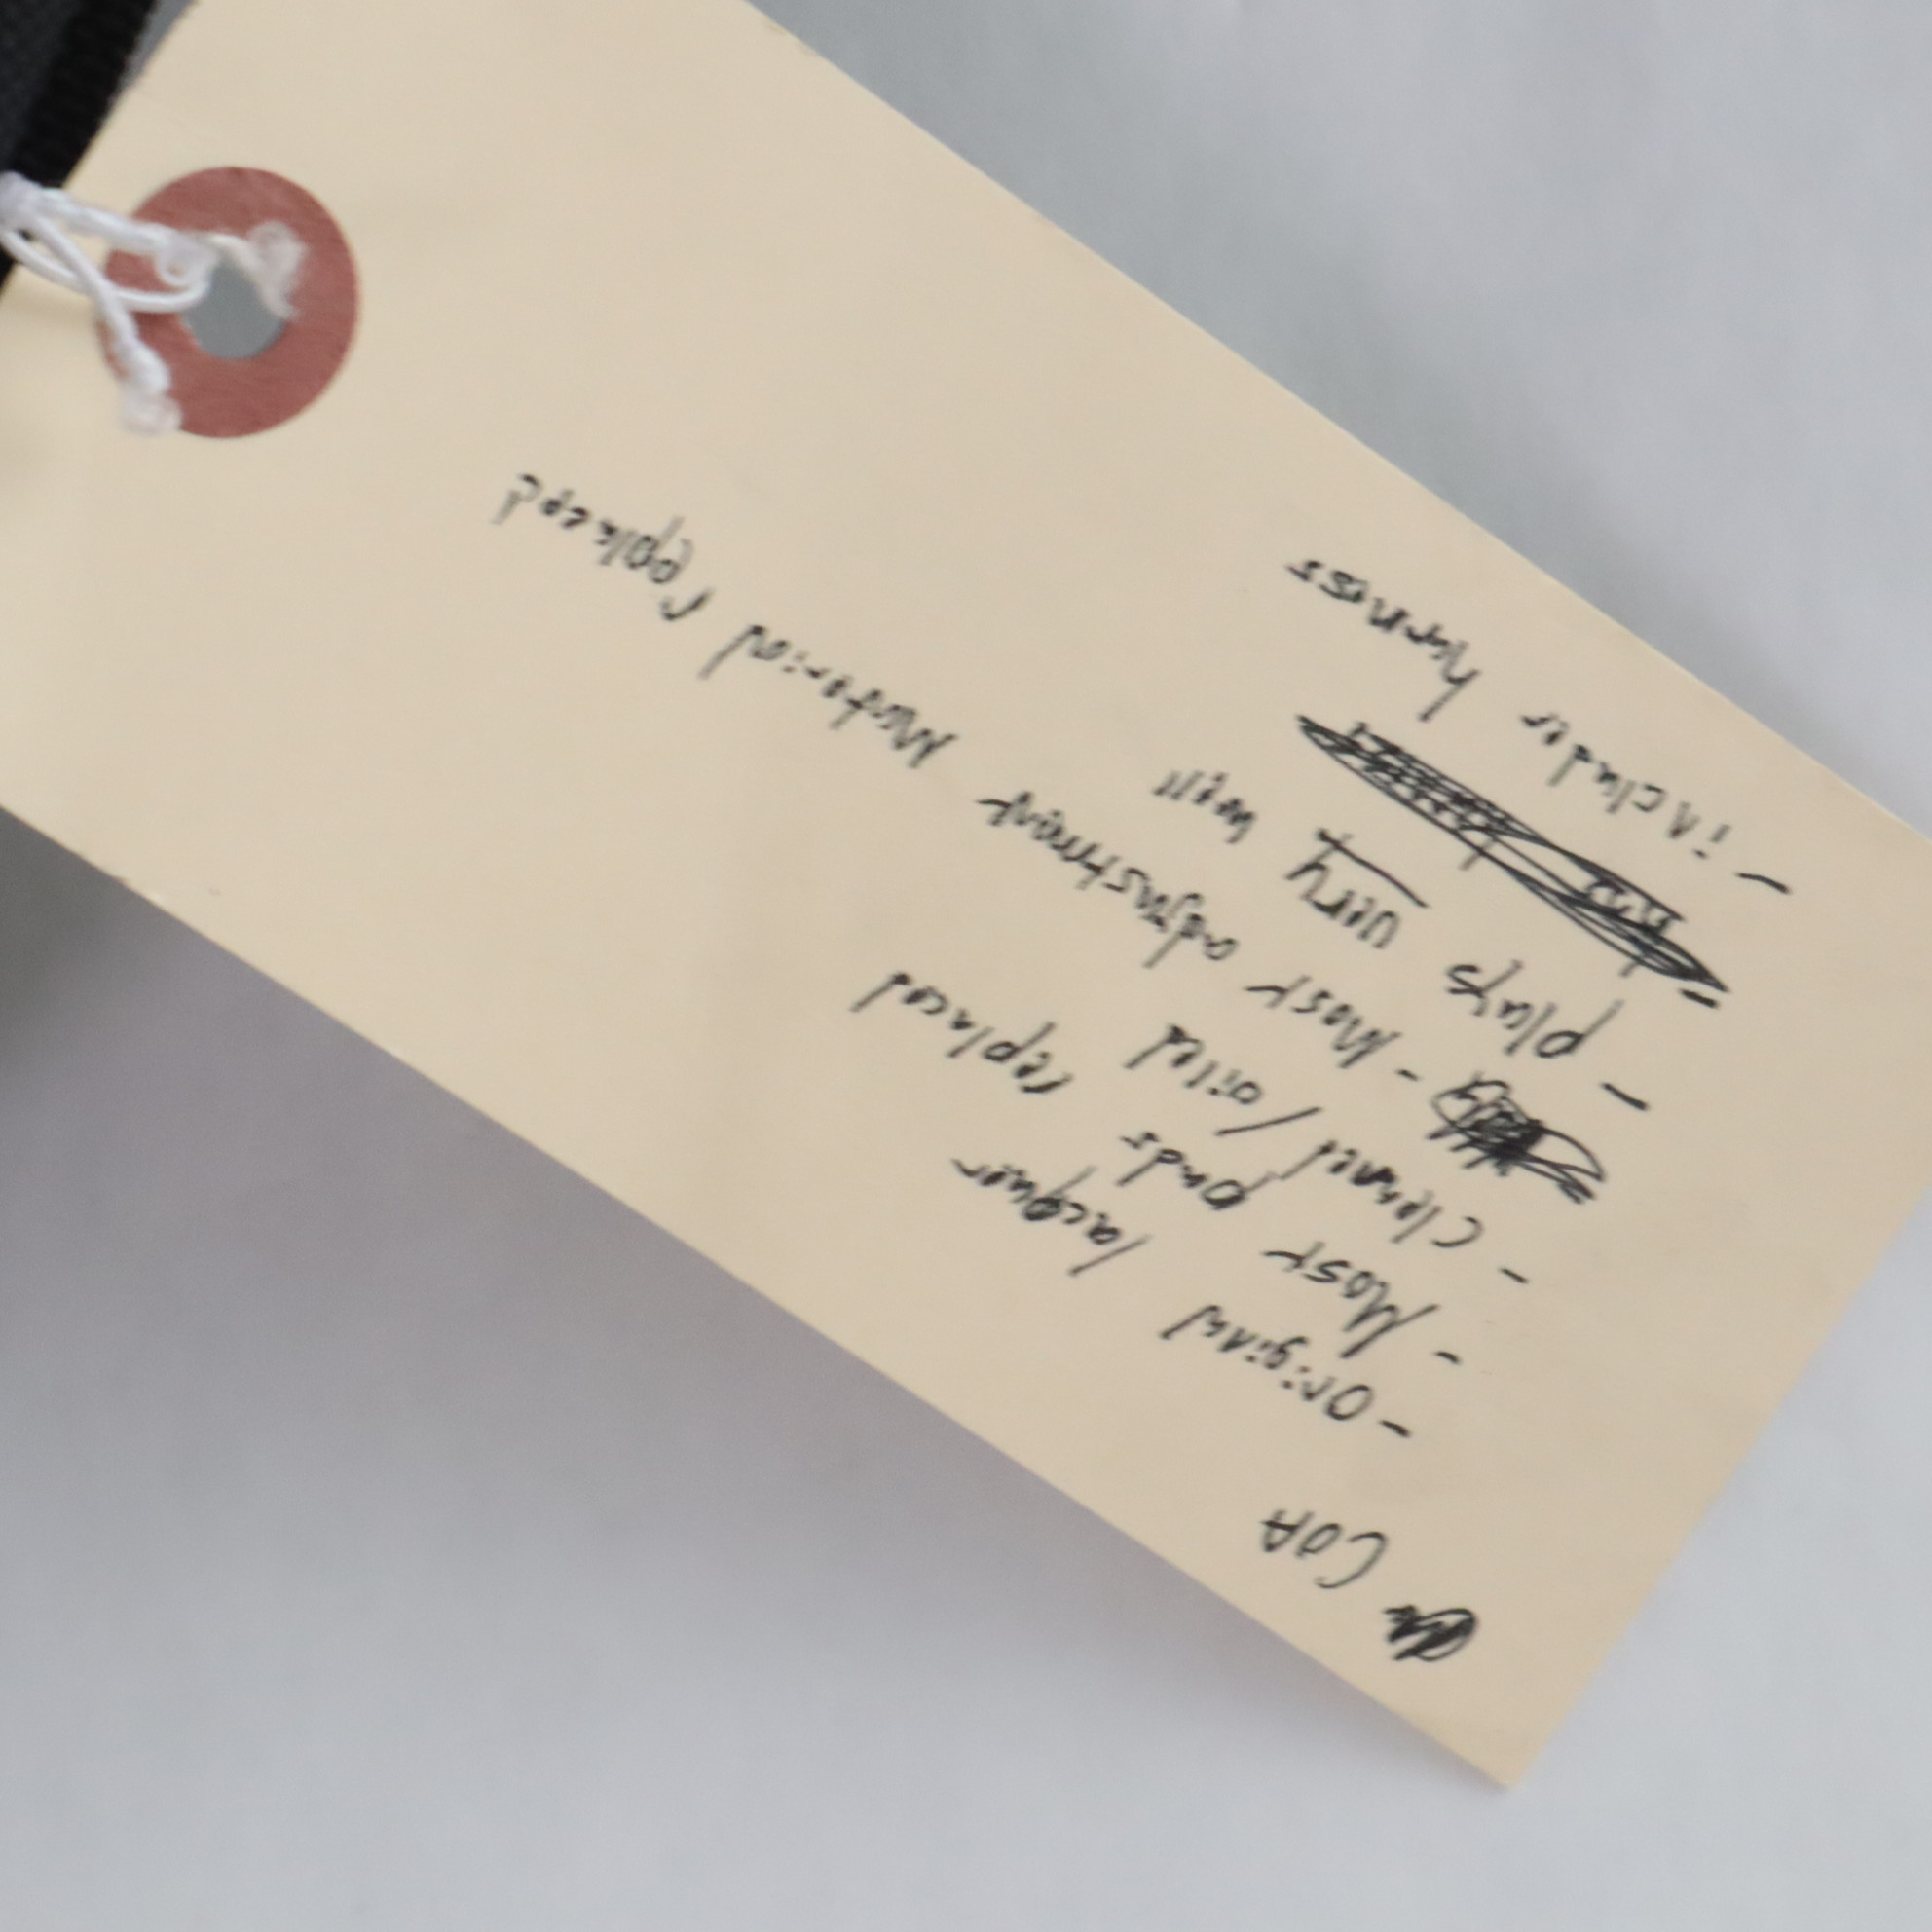 COA
- Original lacquer
- Most pads replaced
- cleaned / oiled
- Most adjustment Material replaced
- plays very well
- includes harness